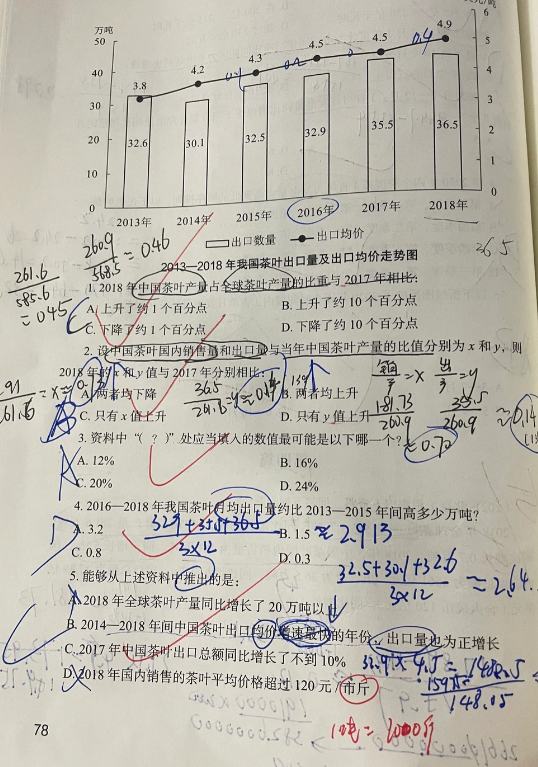 万吨
50
40
30
20
10
0
6
5
4
3
2
1
0
3.8
4.2
4.3
4.5
4.5
4.9
32.6
30.1
32.5
32.9
35.5
36.5
2013年
2014年
2015年
2016年
2017年
2018年
出口数量
出口均价
2013—2018 年我国茶叶出口量及出口均价走势图
36.5
260.9
568.5
=0.46
261.6
585.6
≈0.45
1. 2018 年中国茶叶产量占全球茶叶产量的比重与 2017 年相比：
A. 上升了约 1 个百分点
B. 上升了约 10 个百分点
C. 下降了约 1 个百分点
D. 下降了约 10 个百分点
2. 设中国茶叶国内销售量和出口量与当年中国茶叶产量的比值分别为 x 和 y，则
2018 年的 x 和 y 值与 2017 年分别相比：
A. 两者均下降
B. 两者均上升
C. 只有 x 值上升
D. 只有 y 值上升
36.5
261.6
181.73
260.9
≈0.70
35.5
260.9
≈0.14
3. 资料中“（ ？ ）”处应当填入的数值最可能是以下哪一个？
A. 12%
B. 16%
C. 20%
D. 24%
4. 2016—2018 年我国茶叶月均出口量约比 2013—2015 年间高多少万吨？
A. 3.2
B. 1.5
C. 0.8
D. 0.3
32.9+35.5+36.5
3×12
≈2.913
32.5+30.1+32.6
3×12
≈2.64
5. 能够从上述资料中推出的是：
A. 2018 年全球茶叶产量同比增长了 20 万吨以上
B. 2014—2018 年间中国茶叶出口均价增速最快的年份，出口量也为正增长
C. 2017 年中国茶叶出口总额同比增长了不到 10%
D. 2018 年国内销售的茶叶平均价格超过 120 元/市斤
32.9×4.5=148.05
148.05
78